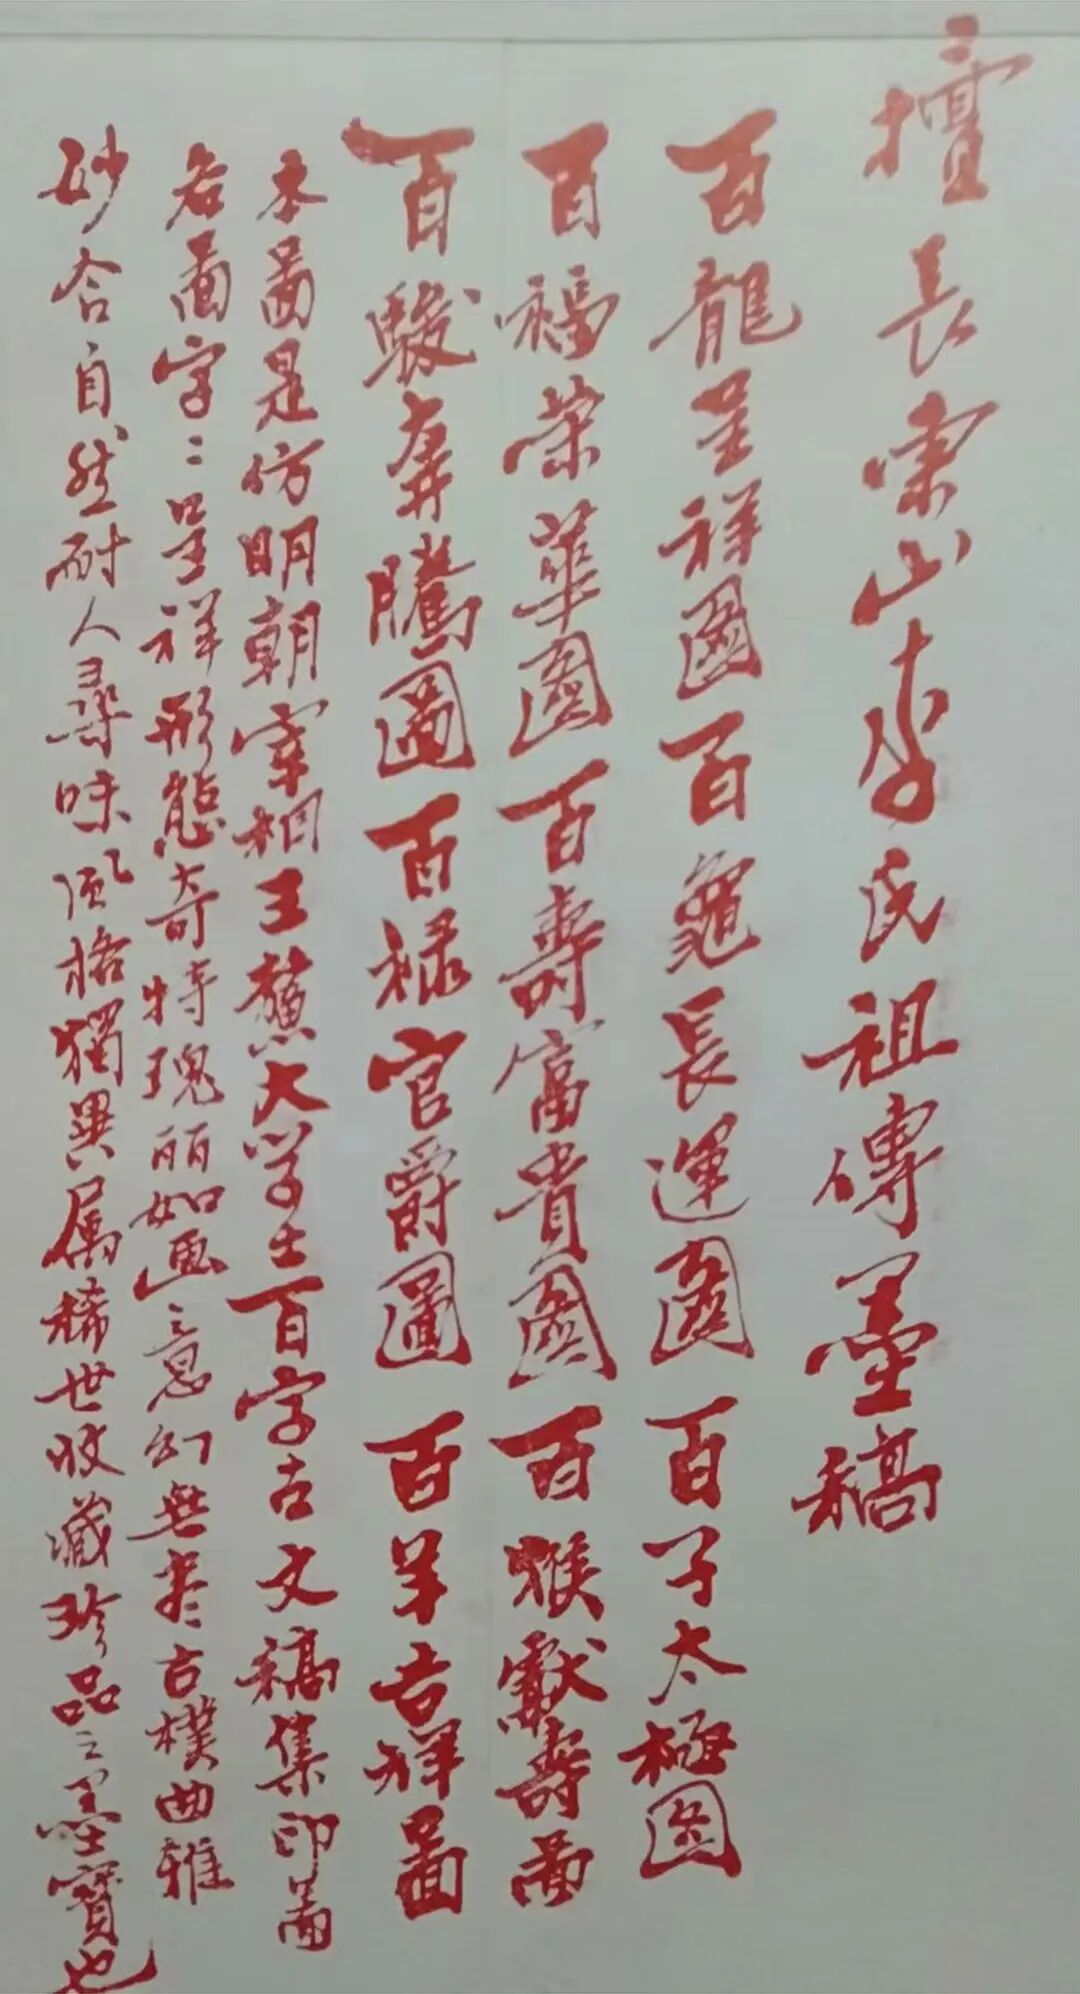 擅長索山李氏祖傳墨稿
百龍呈祥圖百龜長運圖百子太極圖
百福荣華圖百壽富貴圖百猴獻壽啚
百駿奔騰圖百禄官爵圖百羊吉祥啚
本啚是仿明朝宰相王鰲大学士百字古文稿集印啚
各啚字〻呈祥形態奇特瑰丽如画〻意幻無尽古樸典雅
妙合自然耐人尋味風格獨異属稀世收藏珍品之墨寶也